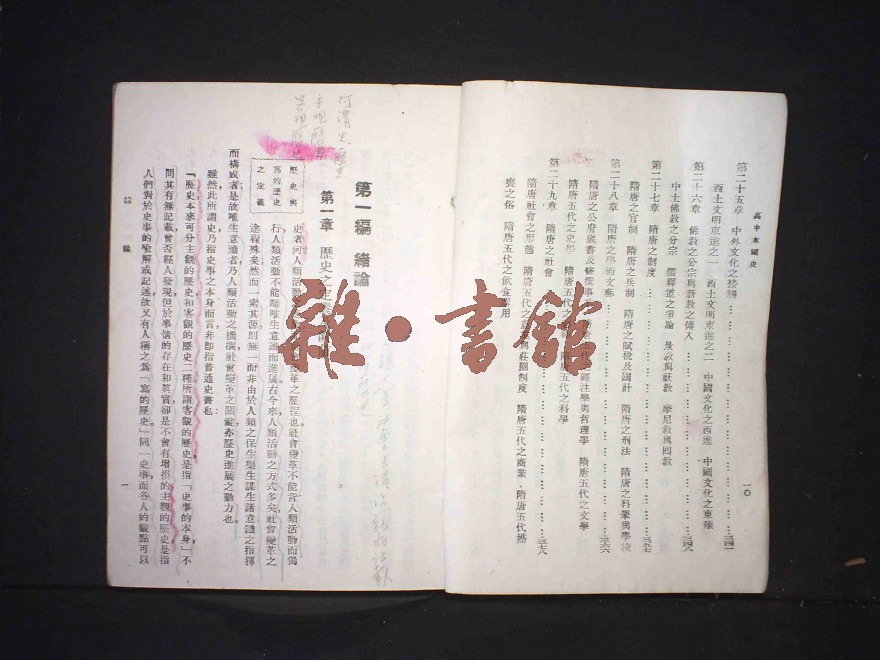 高中本國史
一〇
第二十五章 中外文化之接觸……三四一
西土文明東進之一 西土文明東進之二 中國文化之西進 中國文化之東雅
第二十六章 佛教之分宗與新教之傳入……三四八
中土佛教之分宗 儒釋道之爭論 景教與祆教 摩尼教與回教
第二十七章 隋唐之制度……三五七
隋唐之官制 隋唐之兵制 隋唐之賦稅及國計 隋唐之刑法 隋唐之科舉與學校
第二十八章 隋唐之學術文藝……三六六
隋唐之公府藏書及修撰事 經注學與哲理學 隋唐五代之文學
隋唐五代之史學 隋唐五代之 隋唐五代之科學
第二十九章 隋唐之社會……三七八
隋唐社會之形態 隋唐五代之 與莊園制度 隋唐五代之商業 隋唐五代婚
喪之俗 隋唐五代之飲食 用
第一編 緒論
第一章 歷史之定義
歷史與
寫的歷史
之定義
史者何人類活動 革之歷程也社會變革不能背人類活動而獨
行人類活動不能離唯生意識而進展古今來人類活動之方式多矣社會變革之
途程夥矣然而一索其源則無一而非由於人類之保生樂生謀生諸意識之指揮
而構成者是故唯生意識者乃人類活動之機揣社會變革之關鍵亦歷史進展之動力也。
雖然此所謂史乃指史事之本身而言非卽指普通史書也：
「歷史本來可分主觀的歷史和客觀的歷史二種所謂客觀的歷史是指「史事的本身」不
問其有無記載曾否經人發現但於事情的存在和眞實卻是不會有增損的主觀的歷史是指
人們對於史事的瞭解或記述故又有人稱之爲「寫的歷史」同一史事而各人的觀點可以
緒論
一
雜·書館